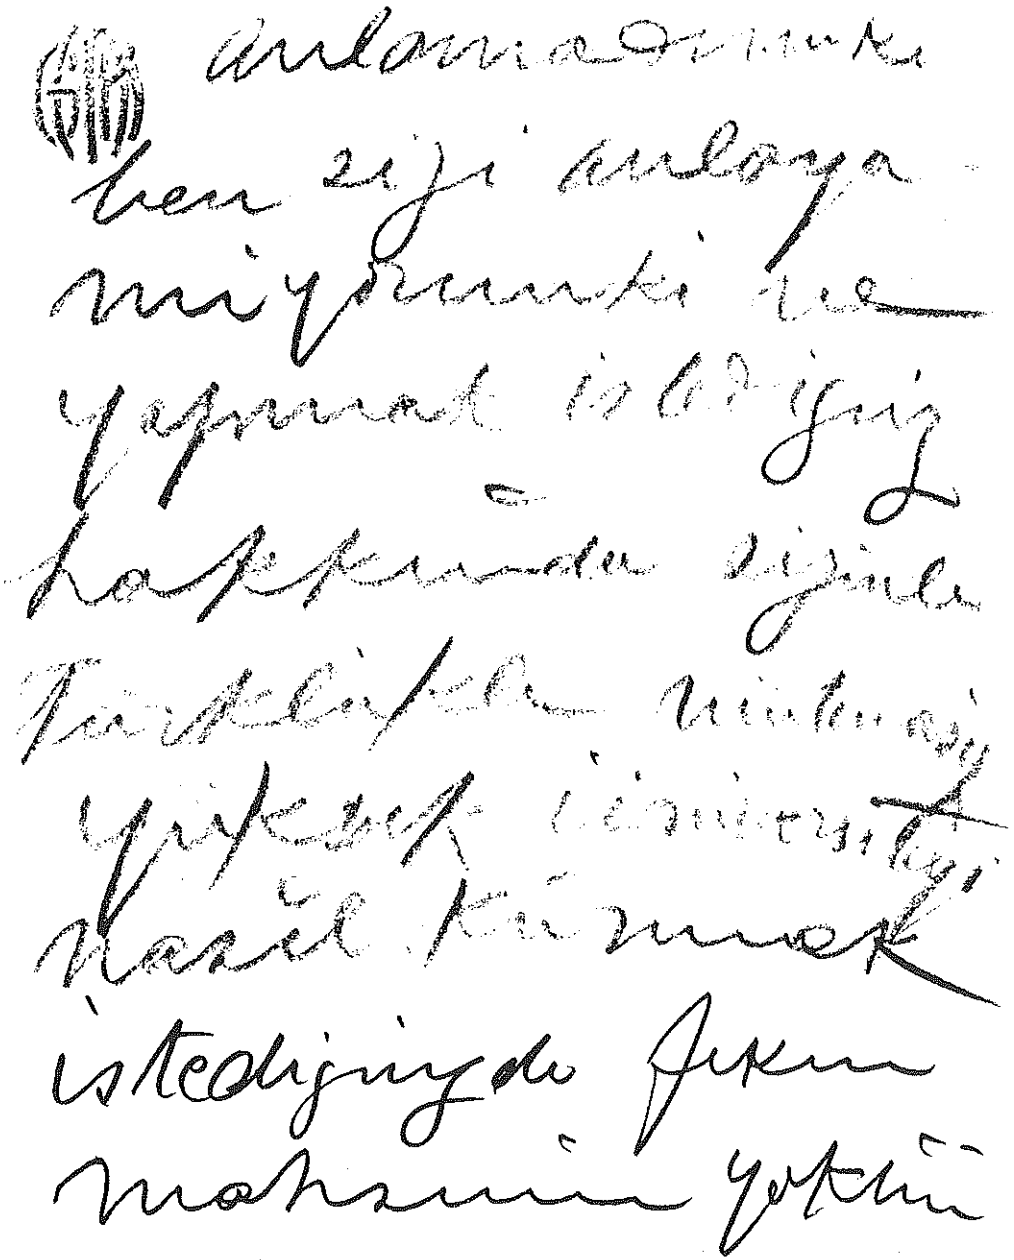 anlamadımki
ben sizi anlaya-
mıyorumki ne
yapmak istediğiniz
hakkında sizinle
Türklükle
yüksek üniversiteyi
nasıl kurmak
istediğinizde fikrim
yoktur